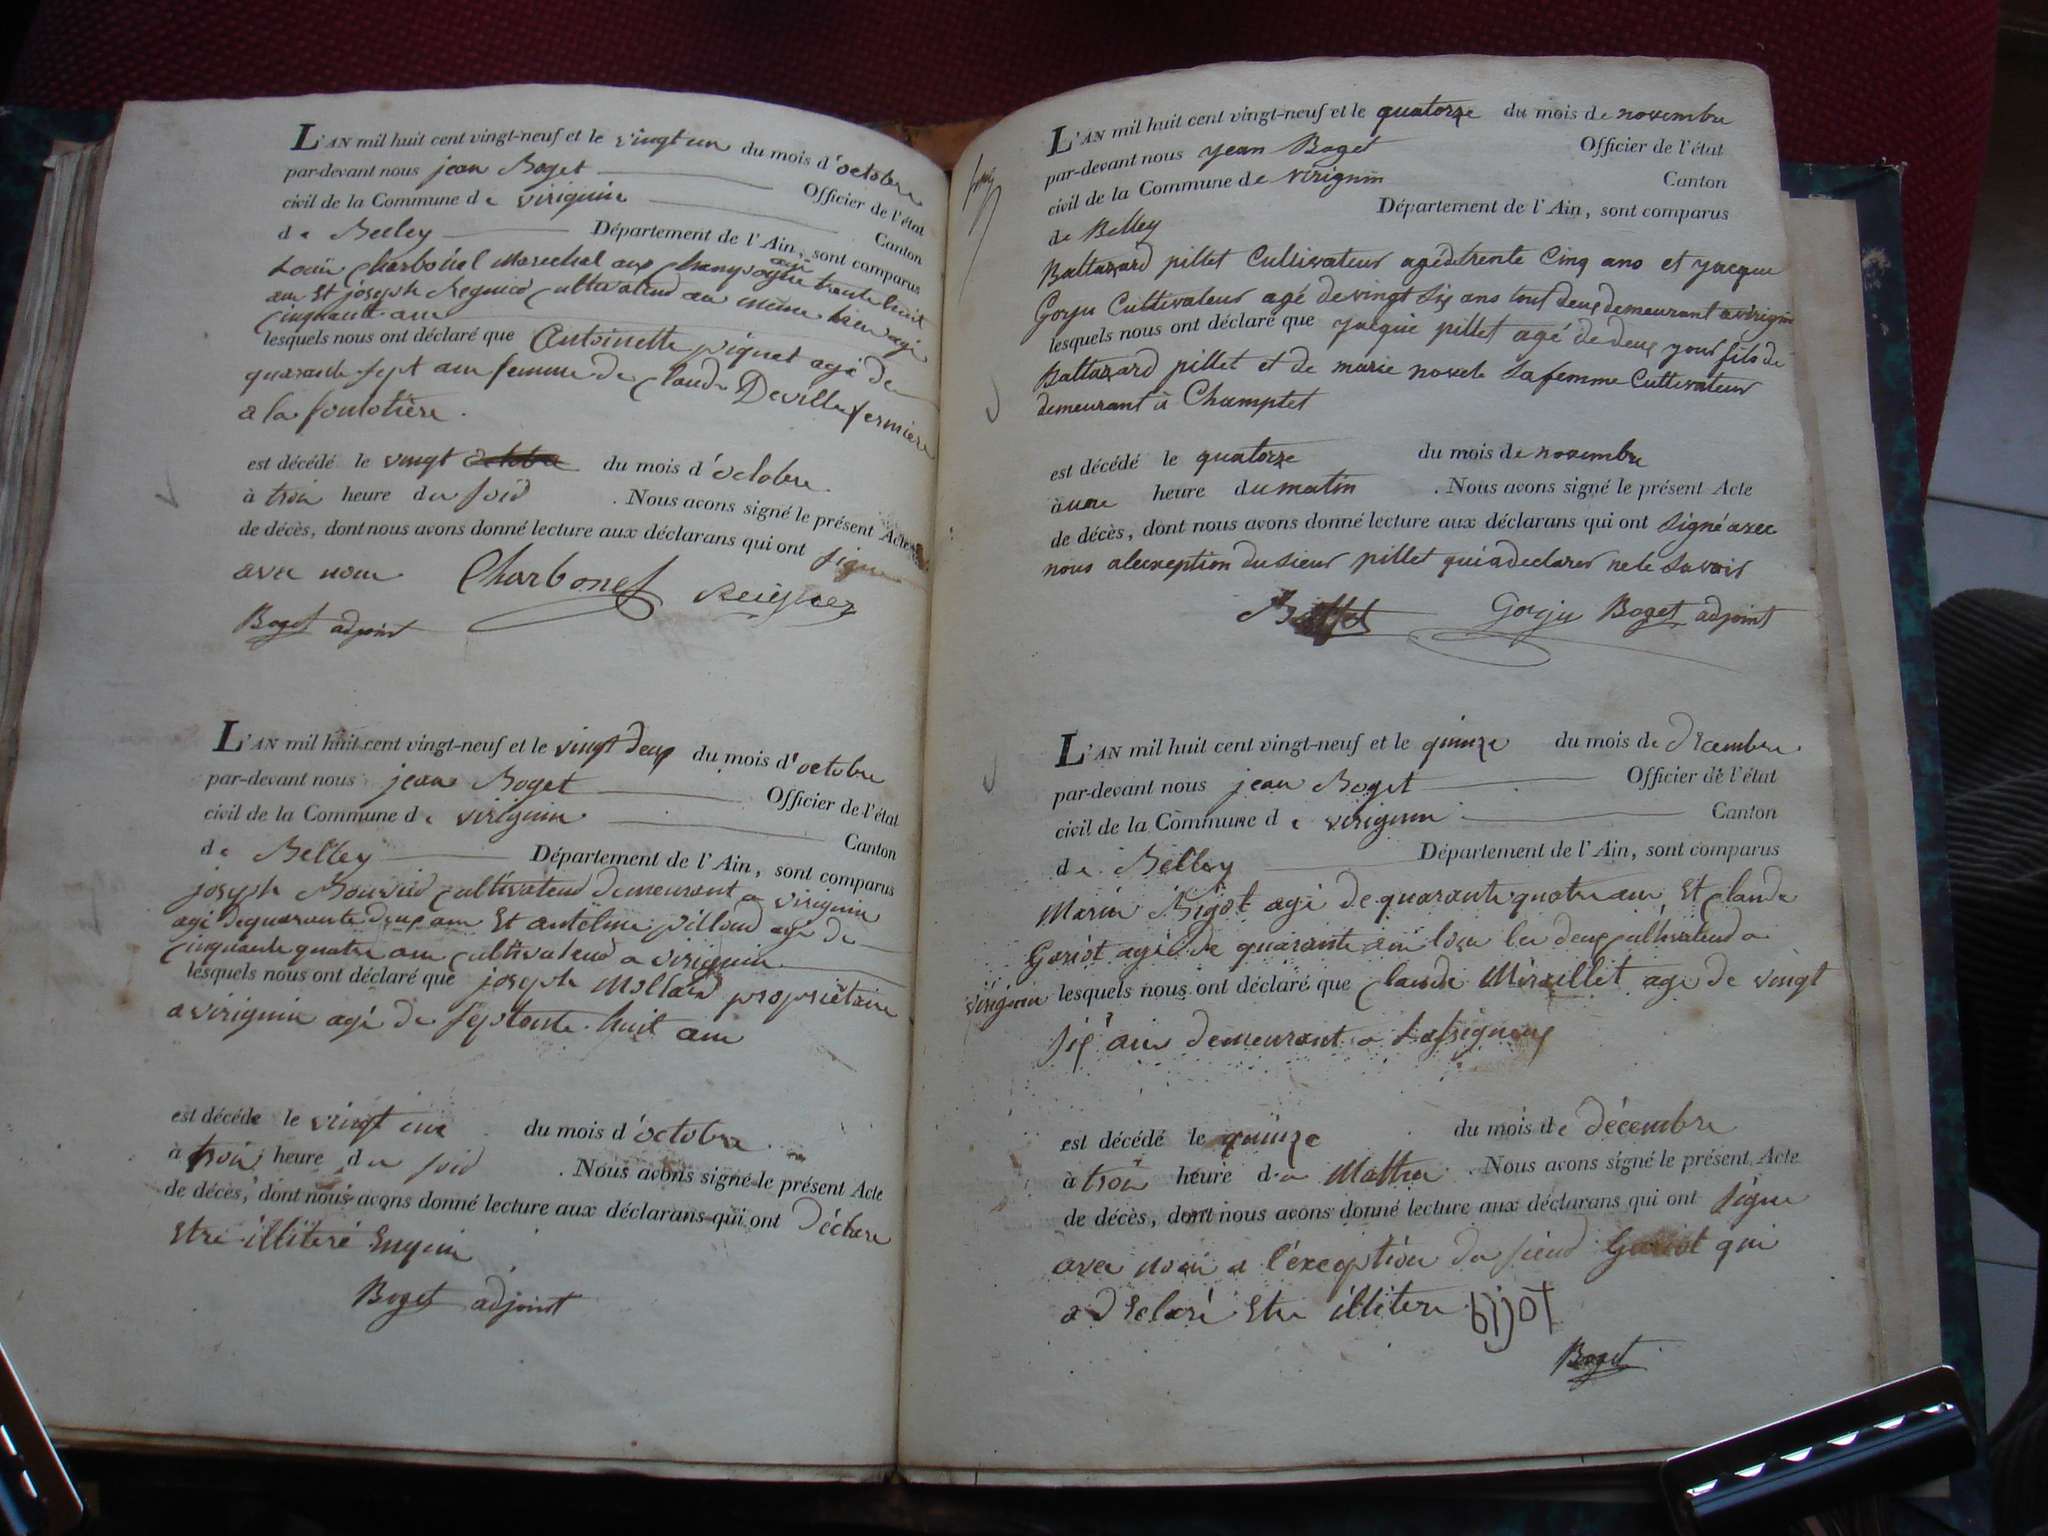 L'AN mil huit cent vingt-neuf et le vingt un du mois d'octobre
par-devant nous jean Boget Officier de l'état
civil de la Commune de virignin Canton
de Belley Département de l'Ain, sont comparus
Louis Charbonel Marechal aux agé trente huit
ans Et joseph cultivateur au même lieu agé
cinquante ans
lesquels nous ont déclaré que Antoinette piquet agé de
quarante sept ans femme de Claude Deville fermiere
a la
est décédé le vingt octobre du mois d'octobre
à trois heure du soir . Nous avons signé le présent Acte
de décès, dont nous avons donné lecture aux déclarans qui ont signé
avec nous Charbonel
Boget adjoint
L'AN mil huit cent vingt-neuf et le vingt deux du mois d'octobre
par-devant nous jean Boget Officier de l'état
civil de la Commune de virignin Canton
de Belley Département de l'Ain, sont comparus
joseph Bouvier cultivateur demeurant a virignin
agé de quarante deux ans Et antelme pilloud agé de
cinquante quatre ans cultivateur a virignin
lesquels nous ont déclaré que joseph Mollard propriétaire
a virignin agé de septante huit ans
est décédé le vingt un du mois d'octobre
à trois heure du soir . Nous avons signé le présent Acte
de décès, dont nous avons donné lecture aux déclarans qui ont déclaré
Etre illitéré
Boget adjoint
L'AN mil huit cent vingt-neuf et le quatorze du mois de novembre
par-devant nous jean Boget Officier de l'état
civil de la Commune de virignin Canton
de Belley Département de l'Ain, sont comparus
Baltazard pillet Cultivateur agé de trente cinq ans et jacque
Gorju Cultivateur agé de vingt six ans tous deux demeurant a virignin
lesquels nous ont déclaré que jacque pillet agé de deux jour fils de
Baltazard pillet et de marie sa femme Cultivateur
demeurant à Champtel
est décédé le quatorze du mois de novembre
à une heure du matin . Nous avons signé le présent Acte
de décès, dont nous avons donné lecture aux déclarans qui ont signé avec
nous a lexception du sieur pillet qui a declarer ne le savoir
Gorju Boget adjoint
L'AN mil huit cent vingt-neuf et le quinze du mois de Décembre
par-devant nous jean Boget Officier de l'état
civil de la Commune de virignin Canton
de Belley Département de l'Ain, sont comparus
Marin Bijot agé de quarante quatre ans Et Claude
Goriot agé de quarante ans tous les deux cultivateur a
virignin lesquels nous ont déclaré que Claude Miraillet agé de vingt
six ans demeurant a
est décédé le quinze du mois de décembre
à trois heure du Mattin . Nous avons signé le présent Acte
de décès, dont nous avons donné lecture aux déclarans qui ont signé
avec nous a l'éxception du sieur Goriot qui
a Déclaré Etre illitere bijot
Boget